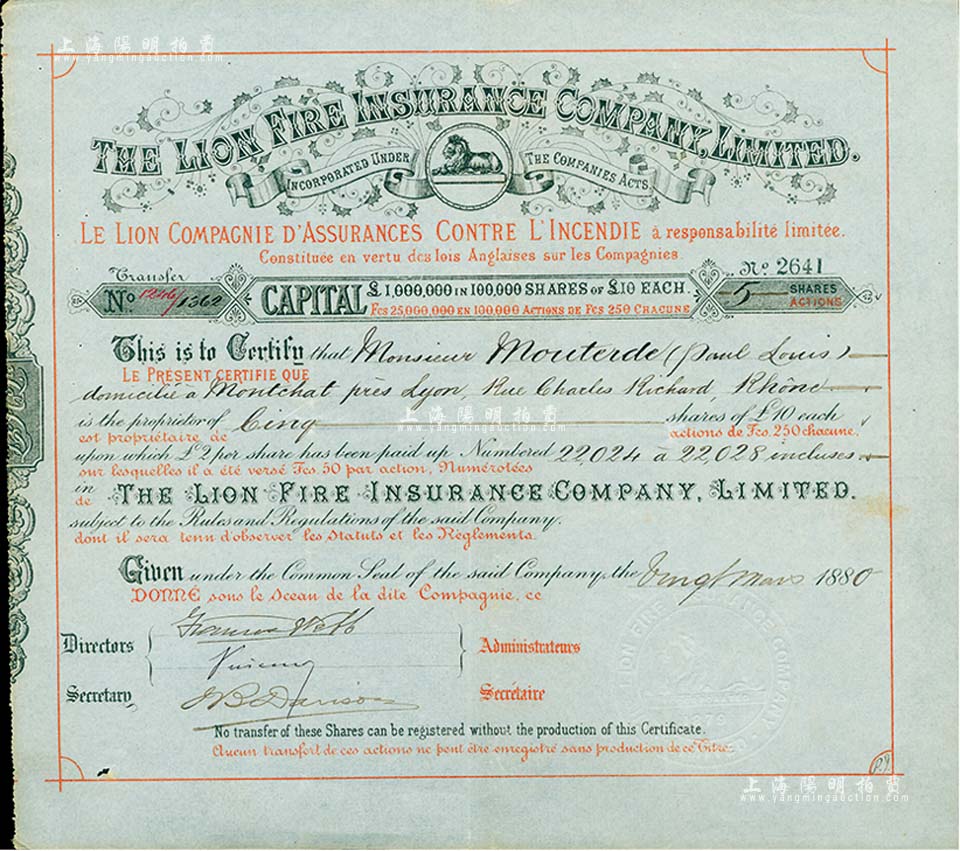 上海陽明拍賣
www.yangmingauction.com
THE LION FIRE INSURANCE COMPANY, LIMITED.
INCORPORATED UNDER THE COMPANIES ACTS
LE LION COMPAGNIE D'ASSURANCES CONTRE L'INCENDIE à responsabilité limitée.
Constituée en vertu des lois Anglaises sur les Compagnies.
Transfer
No. 2641
No. /1362
CAPITAL £1,000,000 IN 100,000 SHARES OF £10 EACH.
FCS 25,000,000 EN 100,000 ACTIONS DE FCS 250 CHACUNE
5 SHARES
ACTIONS
This is to Certify that Monsieur Mouterde (Paul Louis)
LE PRÉSENT CERTIFIE QUE
domicilié à Montchat près Lyon, Rue Charles Richard, Rhône
is the proprietor of Cinq shares of £10 each
est propriétaire de actions de Fcs. 250 chacune,
上海陽明拍賣
www.yangmingauction.com
upon which £2 per share has been paid up Numbered 22,024 à 22,028 incluses
sur lesquelles il a été versé Fcs. 50 par action, Numérotées
in
de
THE LION FIRE INSURANCE COMPANY, LIMITED.
subject to the Rules and Regulations of the said Company.
dont il sera tenu d'observer les Statuts et les Règlements.
Given under the Common Seal of the said Company, the Vingt Mars 1880
DONNÉ sous le Sceau de la dite Compagnie, ce
LION FIRE INSURANCE COMPANY
Directors
Francis Webb
Administrateurs
Secretary
Secrétaire
No transfer of these Shares can be registered without the production of this Certificate.
Aucun transfert de ces actions ne peut être enregistré sans production de ce Titre.
上海陽明拍賣
www.yangmingauction.com